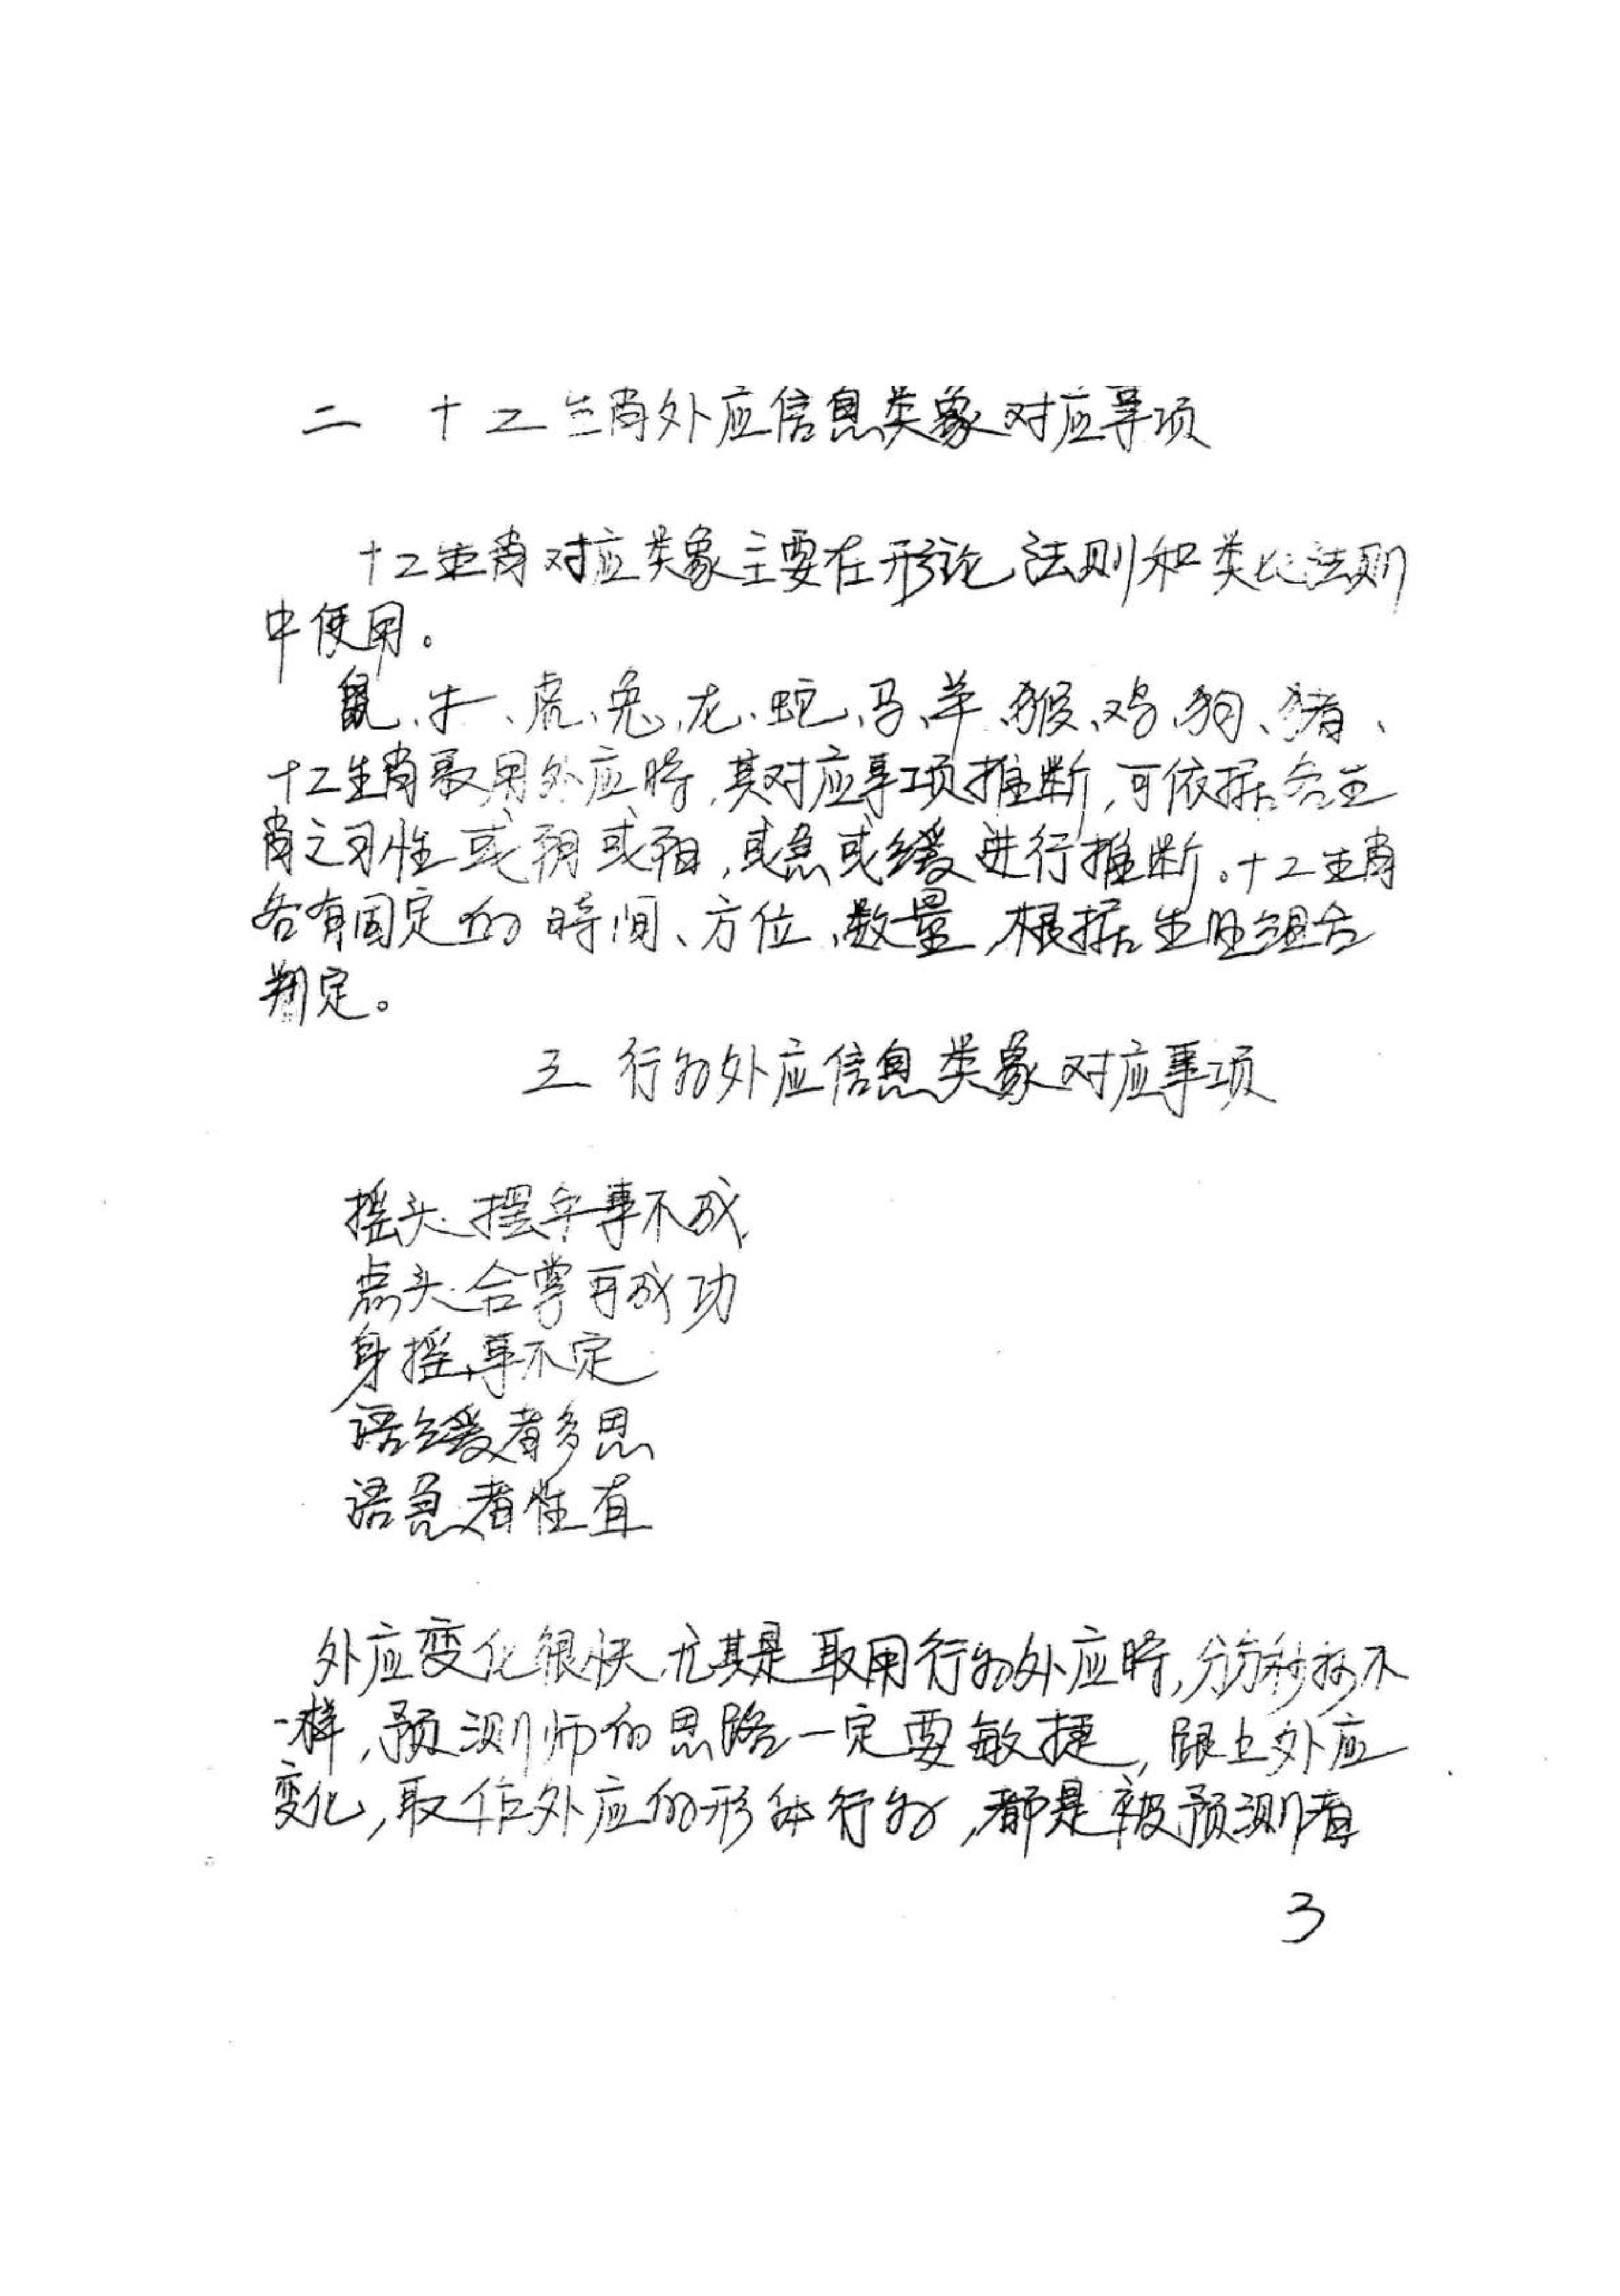 二 十二生肖外应信息类象对应事项
十二生肖对应类象主要在形论法则和类比法则
中使用。
鼠、牛、虎、兔、龙、蛇、马、羊、猴、鸡、狗、猪、
十二生肖取用外应时,其对应事项推断,可依据各生
肖之习性或阴或阳,或急或缓进行推断。十二生肖
各有固定的時间、方位、数量,根据生肖组合
判定。
三 行为外应信息类象对应事项
摇头、摆手事不成
点头、合掌可成功
身摇,事不定
语缓者多思
语急者性直
外应变化很快,尤其是取用行为外应時,分分秒秒不
一样,预测师的思路一定要敏捷,跟上外应
变化,取作外应的形体行为,都是被预测者
3